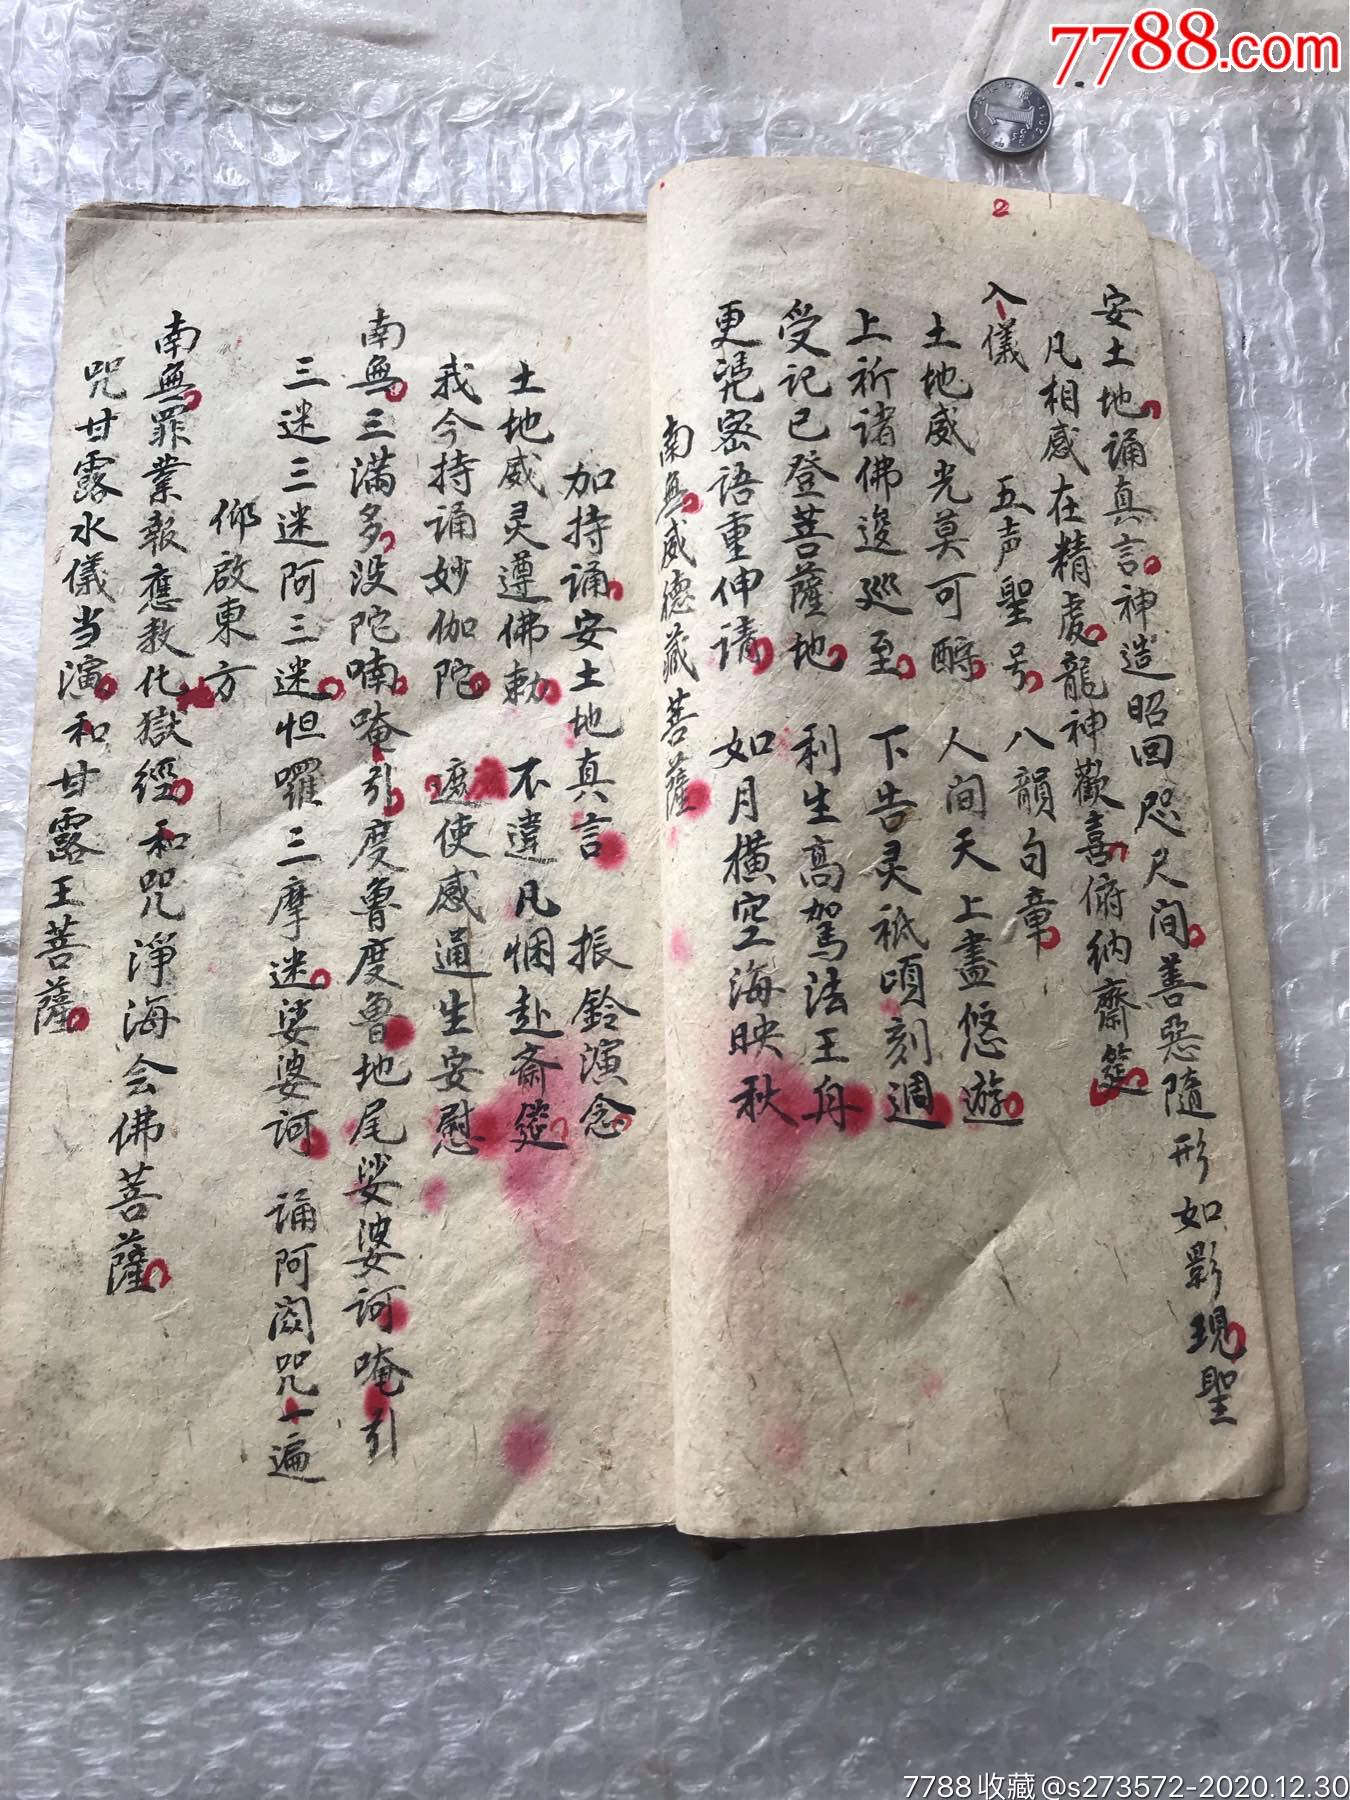 7788.com
2
安土地诵真言神造昭回咫尺间善惡隨形如影現聖
凡相感在精虔龍神歡喜俯納齋筵
入儀 五声聖号 八韻句章
土地威光莫可酧 人间天上盡悠遊
上祈诸佛逡巡至 下告灵祇頃刻週
受记已登菩薩地 利生高駕法王舟
更凭密语重伸请 如月横空海映秋
南無威德藏菩薩
加持诵安土地真言 振鈴演念
土地威灵遵佛勅 不違凡悃赴斋筵
我今持诵妙伽陀 遮使感通生安慰
南無三满多没陀喃唵引度魯度魯地尾娑婆诃唵引
三迷三迷阿三迷怛羅三摩迷娑婆诃 诵阿閦咒一遍
仰啟東方
南無罪業報應教化獄經和咒淨海会佛菩薩
咒甘露水儀当演和甘露王菩薩
7788收藏@s273572-2020.12.30